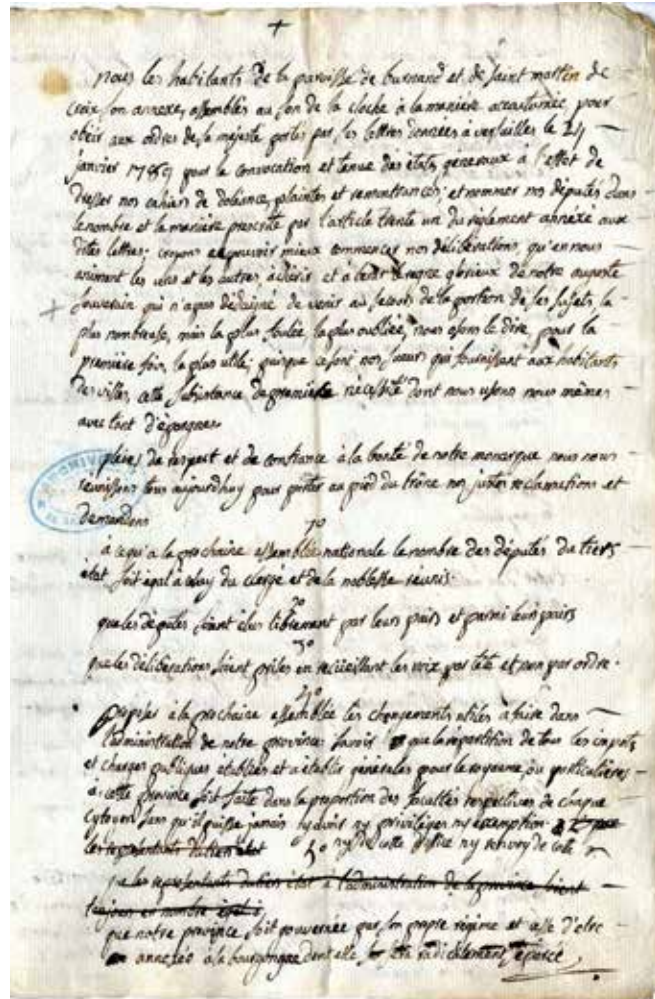 +
nous les habitants de la paroisse de burnand et de saint martin de
croix son annexe, assemblés au son de la cloche à la manière accoutumée, pour
obeir aux ordres de sa majesté portés par ses lettres données à versailles le 24
janvier 1789 pour la convocation et tenue des etats generaux à l'effet de
dresser nos cahiers de doleance, plaintes et remontrances, et nommer nos députés dans
le nombre et la manière prescrite par l'article trente un du règlement annéxé aux
dites lettres; croyons ne pouvoir mieux commencer nos déliberations, qu'en nous
animant les uns et les autres, à chérir et à benir le regne glorieux de notre auguste
souverain qui n'a pas dédaigné de venir au secours de la portion de ses sujets, la
plus nombreuse, mais la plus foulée la plus oubliée, nous osons le dire, pour la
première fois, la plus utile, puisque ce sont nos sueurs qui fournissent aux habitants
des villes, cette subsistance de première necessité dont nous usons nous mêmes
avec tant d'épargnes
pleins de respect et de confiance à la bonté de notre monarque nous nous
réunissons tous aujourdhuy pour porter au pied du trône nos justes reclamations et
demandons
1º
à ce qu'a la prochaine assemblée nationale le nombre des députés du tiers
état soit égal à celuy du clergé et de la noblesse réunis.
2º
que les députés soient élus librement par leurs pairs et parmi leurs pairs
3º
que les déliberations soient prises en recüeillant les voix par tête et non par ordre.
4º
proposer à la prochaine assemblée les changements utiles à faire dans
l'administration de notre province savoir que la répartition de tous les impots
et charges publiques etablies et à etablir générales pour le royaume, ou particulières
à cette province soit faite dans la proportion des facultés respectives de chaque
cytoyen sans qu'il puisse jamais ny avoir ny privilèges ny exemption
les représentants du tiers état 5º ny de cette
que les representants du tiers état à l'administration de la province soient
toujours en nombre égal
que notre province soit gouvernée par son propre régime et cesse d'etre
annexée à la bourgongne dont elle sera radicalement séparée